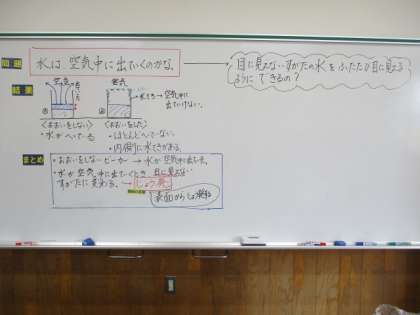 問題
水は、空気中に出ていくのかな。
目に見えないすがたの水を ふたたび目に見える
ようにできるの？
結果
空気
空気
水てき → 空気中に
出ていけない。
〈おおいをしない〉
・水がへっている
〈おおいをした〉
・ほとんどへっていない。
・内側に水てきがある。
まとめ
・おおいをしないビーカー → 水が空気中に出た。
・水が空気中に出ていくとき 目に見えない
すがたに変わる。→ じょう発
表面からじょう発